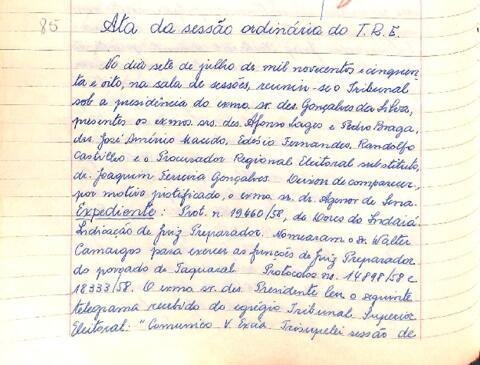 85
Ata da sessão ordinária do T.R.E.
No dia sete de julho de mil novecentos e cinquen
ta e oito, na sala de sessões, reuniu-se o Tribunal
sob a presidência do exmo sr. des. Gonçalves da Silva,
presentes os exmos srs. des. Afonso Lages e Pedro Braga,
drs. José Américo Macedo, Edésio Fernandes, Randolfo
Castilho e o Procurador Regional Eleitoral substituto,
dr. Joaquim Ferreira Gonçalves. Deixou de comparecer,
por motivo justificado, o exmo sr. dr. Agenor de Sena.
Expediente: Prot. n. 19.460/58, de Dores do Indaiá
Indicação de Juiz Preparador. Nomearam o sr. Walter
Camargos para exercer as funções de Juiz Preparador
do povoado de Taquaral. Protocolos ns. 14898/58 e
18333/58. O exmo sr. des. Presidente leu o seguinte
telegrama recebido do egrégio Tribunal Superior
Eleitoral: "Comunico V. Excia. sessão de